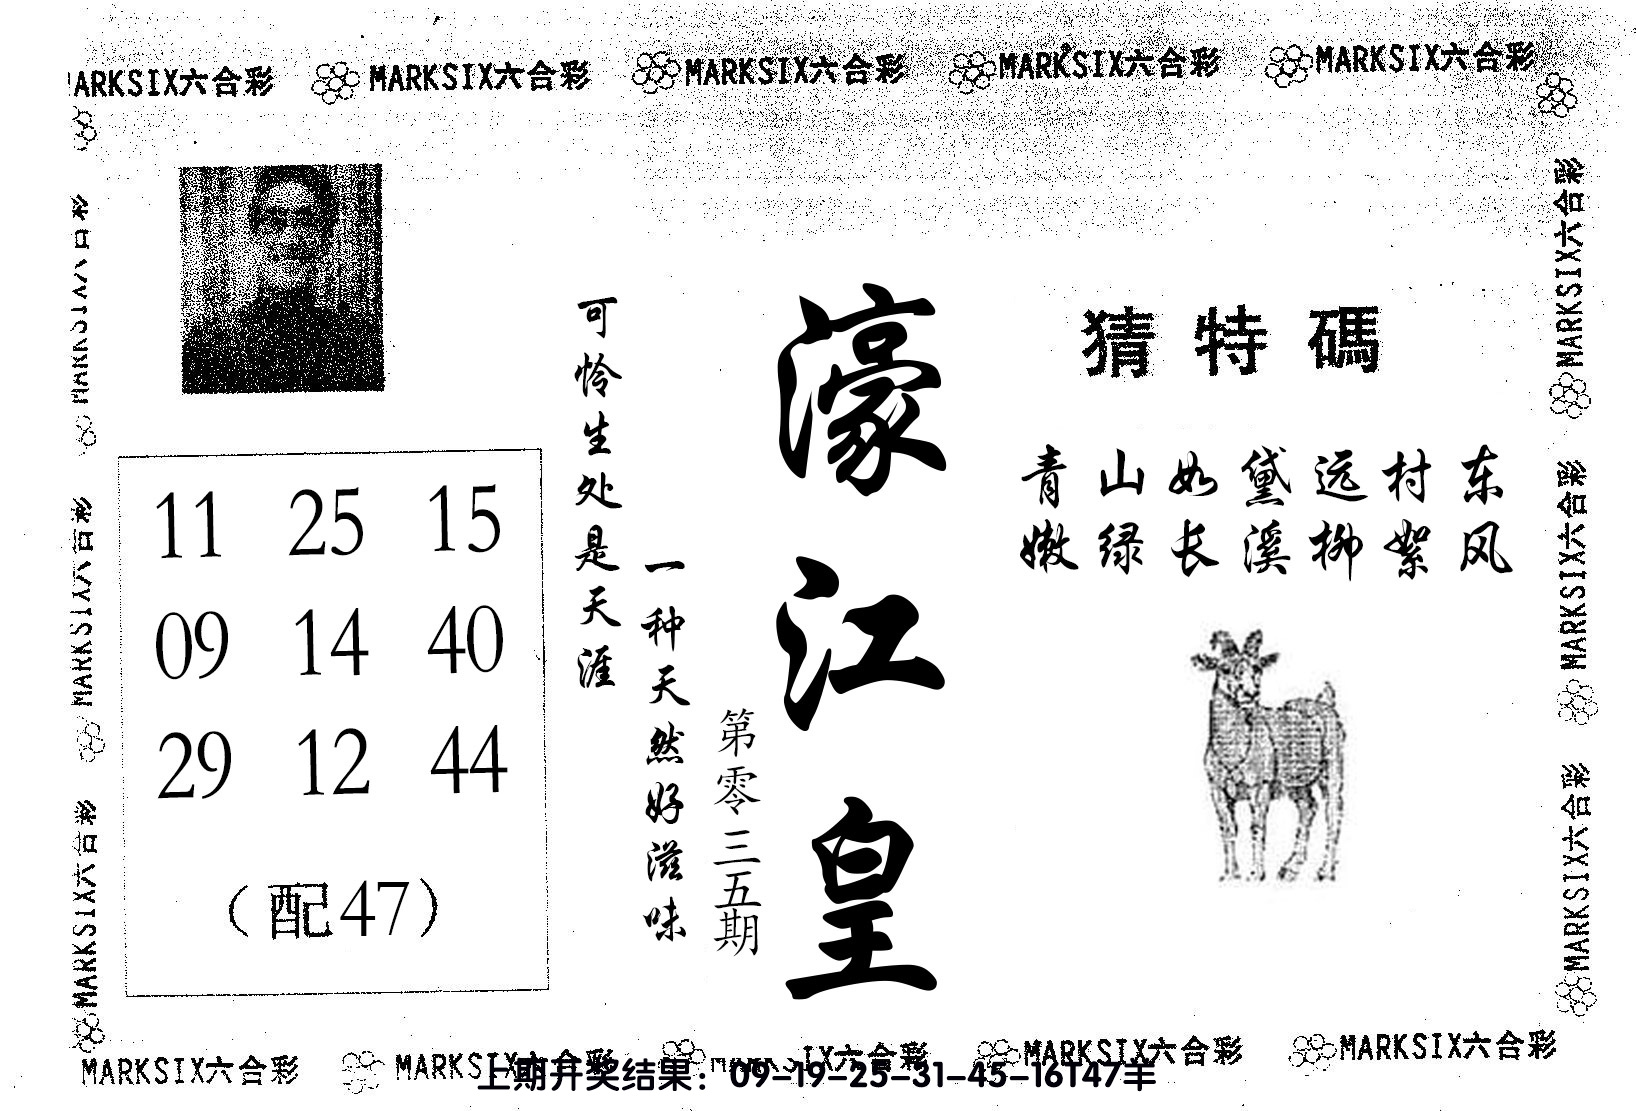 MARKSIX六合彩 MARKSIX六合彩 MARKSIX六合彩 MARKSIX六合彩
猜特碼
青山如黛远村东
嫩绿长溪柳絮风
濠江皇
第零三五期
一种天然好滋味
可怜生处是天涯
11 25 15
09 14 40
29 12 44
（配47）
MARKSIX六合彩
MARKSIX六合彩
MARKSIX六合彩
MARKSIX六合彩
MARKSIX六合彩
MARKSIX六合彩 MARKSIX六合彩 MARKSIX六合彩 MARKSIX六合彩
上期开奖结果：09-19-25-31-45-16T47羊